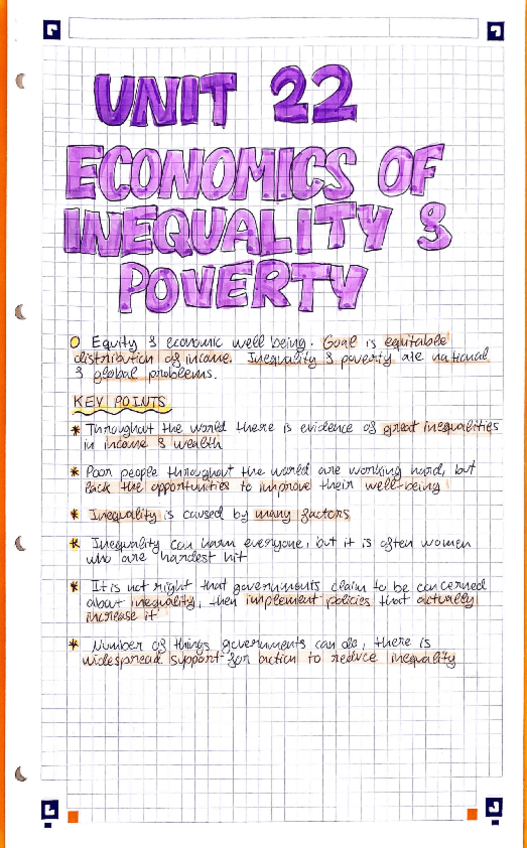 UNIT 22
ECONOMICS OF
INEQUALITY &
POVERTY
Equity & economic well being. Goal is equitable
distribution of income. Inequality & poverty are national
& global problems.
KEY POINTS
* Throughout the world there is evidence of great inequalities
in income & wealth
* Poor people throughout the world are working hard, but
lack the opportunities to improve their well-being
* Inequality is caused by many factors
* Inequality can harm everyone, but it is often women
who are hardest hit
* It is not right that governments claim to be concerned
about inequality, then implement policies that actually
increase it
* Number of things governments can do, there is
widespread support for action to reduce inequality